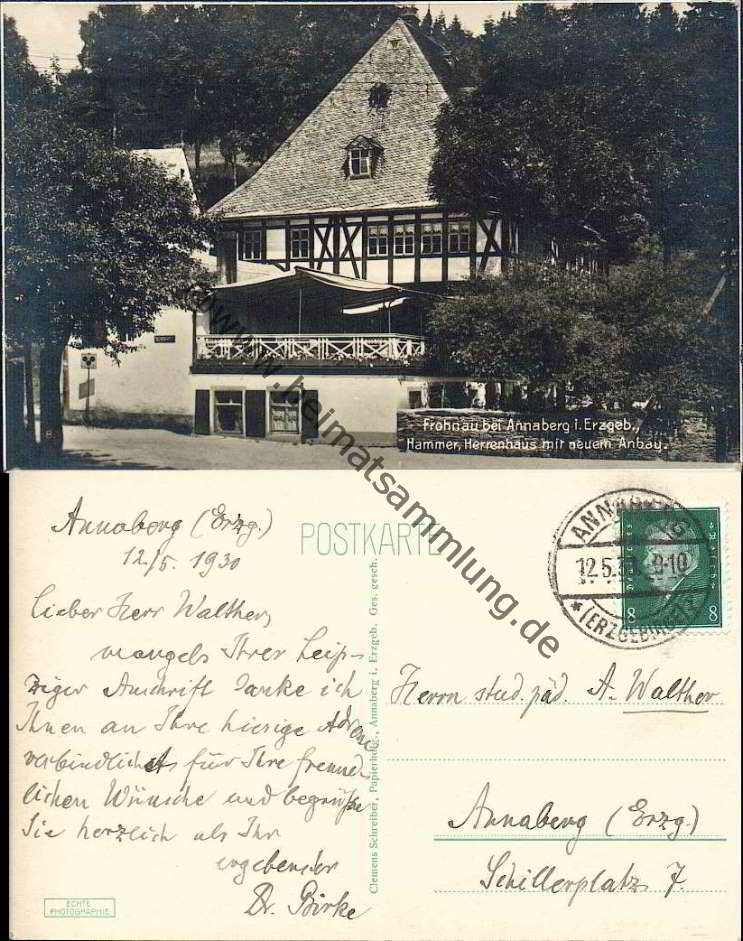 Frohnau bei Annaberg i. Erzgeb.,
Hammer, Herrenhaus mit neuem Anbau.
www.heimatsammlung.de
POSTKARTE
Annaberg (Erzg.)
12/5. 1930
Lieber Herr Walther,
mangels Ihrer Leip-
ziger Anschrift danke ich
Ihnen an Ihre hiesige Adresse
verbindlichst für Ihre freund-
lichen Wünsche und begrüße
Sie herzlich als Ihr
ergebenster
Dr. Birke
ECHTE
PHOTOGRAPHIE
Clemens Schreiber, Papierhdlg., Annaberg i. Erzgeb. Ges. gesch.
ANNABERG
12.5.30. 9-10
*(ERZGEBIRGE)
8 8
Herrn stud. päd. A. Walther
Annaberg (Erzg.)
Schillerplatz 7.